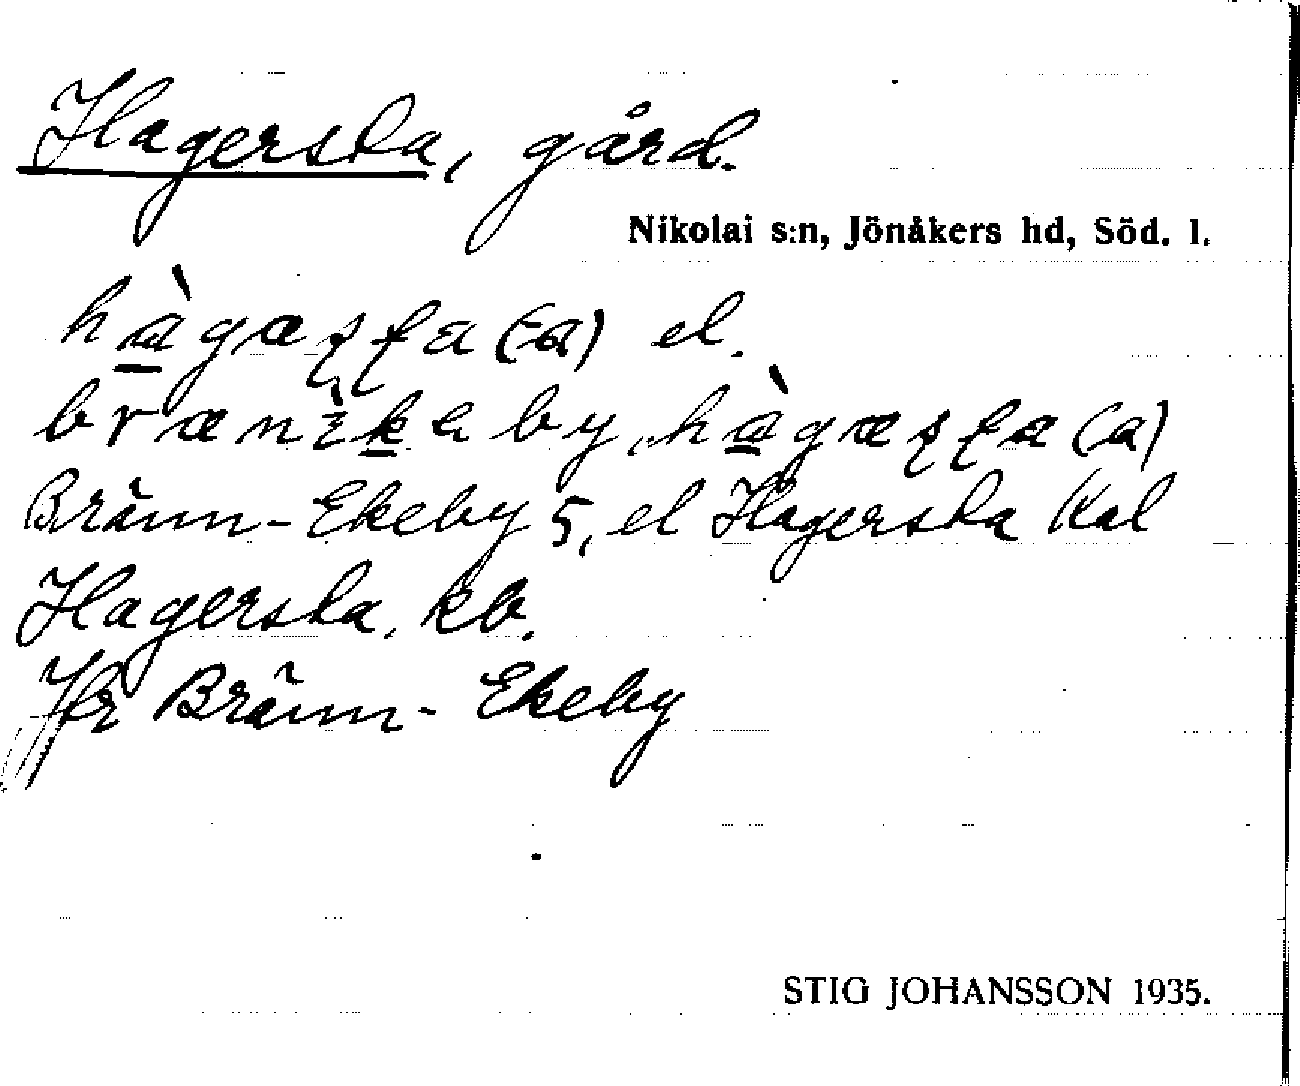 Hagersta, gård.
Nikolai s:n, Jönåkers hd, Söd. l.
hàgæʂʈa (a) el.
brænìkeby, hàgæʂʈa (a)
Bränn-Ekeby 5, el Hagersta Kal
Hagersta, kb.
Jfr Bränn-Ekeby
STIG JOHANSSON 1935.